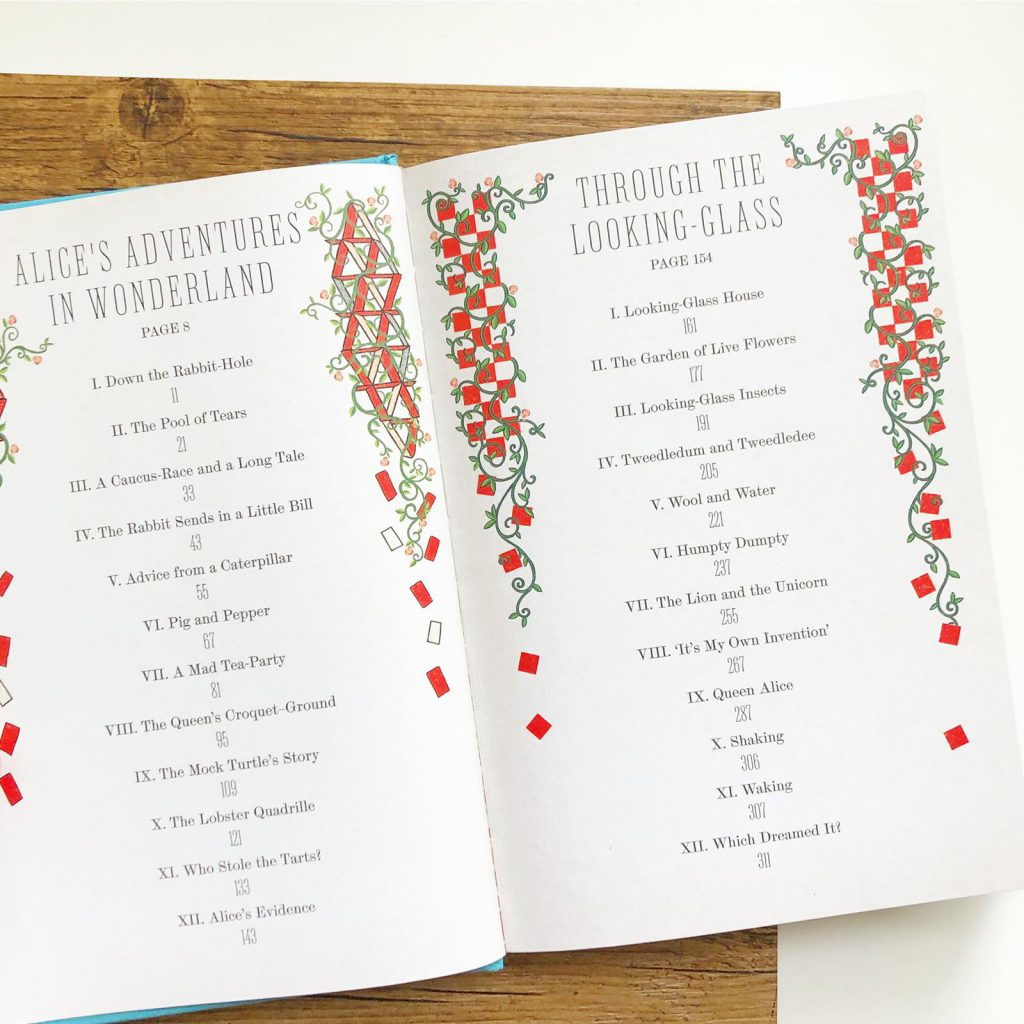 ALICE'S ADVENTURES
IN WONDERLAND
PAGE 8
I. Down the Rabbit-Hole
11
II. The Pool of Tears
21
III. A Caucus-Race and a Long Tale
33
IV. The Rabbit Sends in a Little Bill
43
V. Advice from a Caterpillar
55
VI. Pig and Pepper
67
VII. A Mad Tea-Party
81
VIII. The Queen's Croquet–Ground
95
IX. The Mock Turtle's Story
109
X. The Lobster Quadrille
121
XI. Who Stole the Tarts?
133
XII. Alice's Evidence
143
THROUGH THE
LOOKING-GLASS
PAGE 154
I. Looking-Glass House
161
II. The Garden of Live Flowers
177
III. Looking-Glass Insects
191
IV. Tweedledum and Tweedledee
205
V. Wool and Water
221
VI. Humpty Dumpty
237
VII. The Lion and the Unicorn
255
VIII. ‘It's My Own Invention’
267
IX. Queen Alice
287
X. Shaking
306
XI. Waking
307
XII. Which Dreamed It?
311